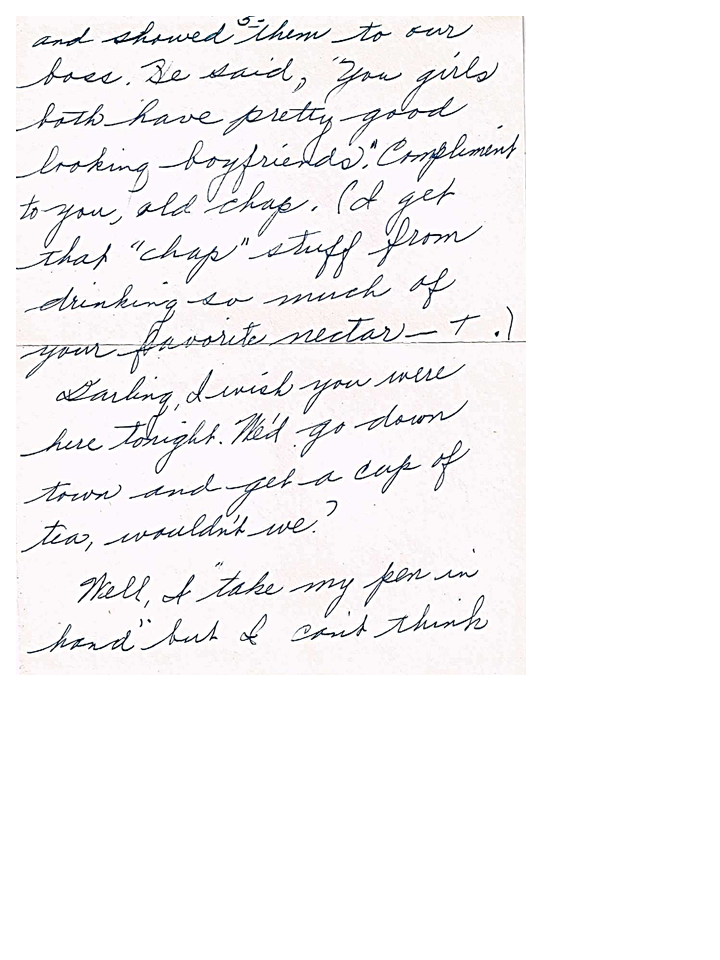 5-
and showed them to our
boss. He said, "You girls
both have pretty good
looking boyfriends." Compliment
to you, old chap. (I get
that "chap" stuff from
drinking so much of
your favorite nectar - T.)
Darling, I wish you were
here tonight. We'd go down
town and get a cup of
tea, wouldn't we?
Well, I "take my pen in
hand" but I can't think